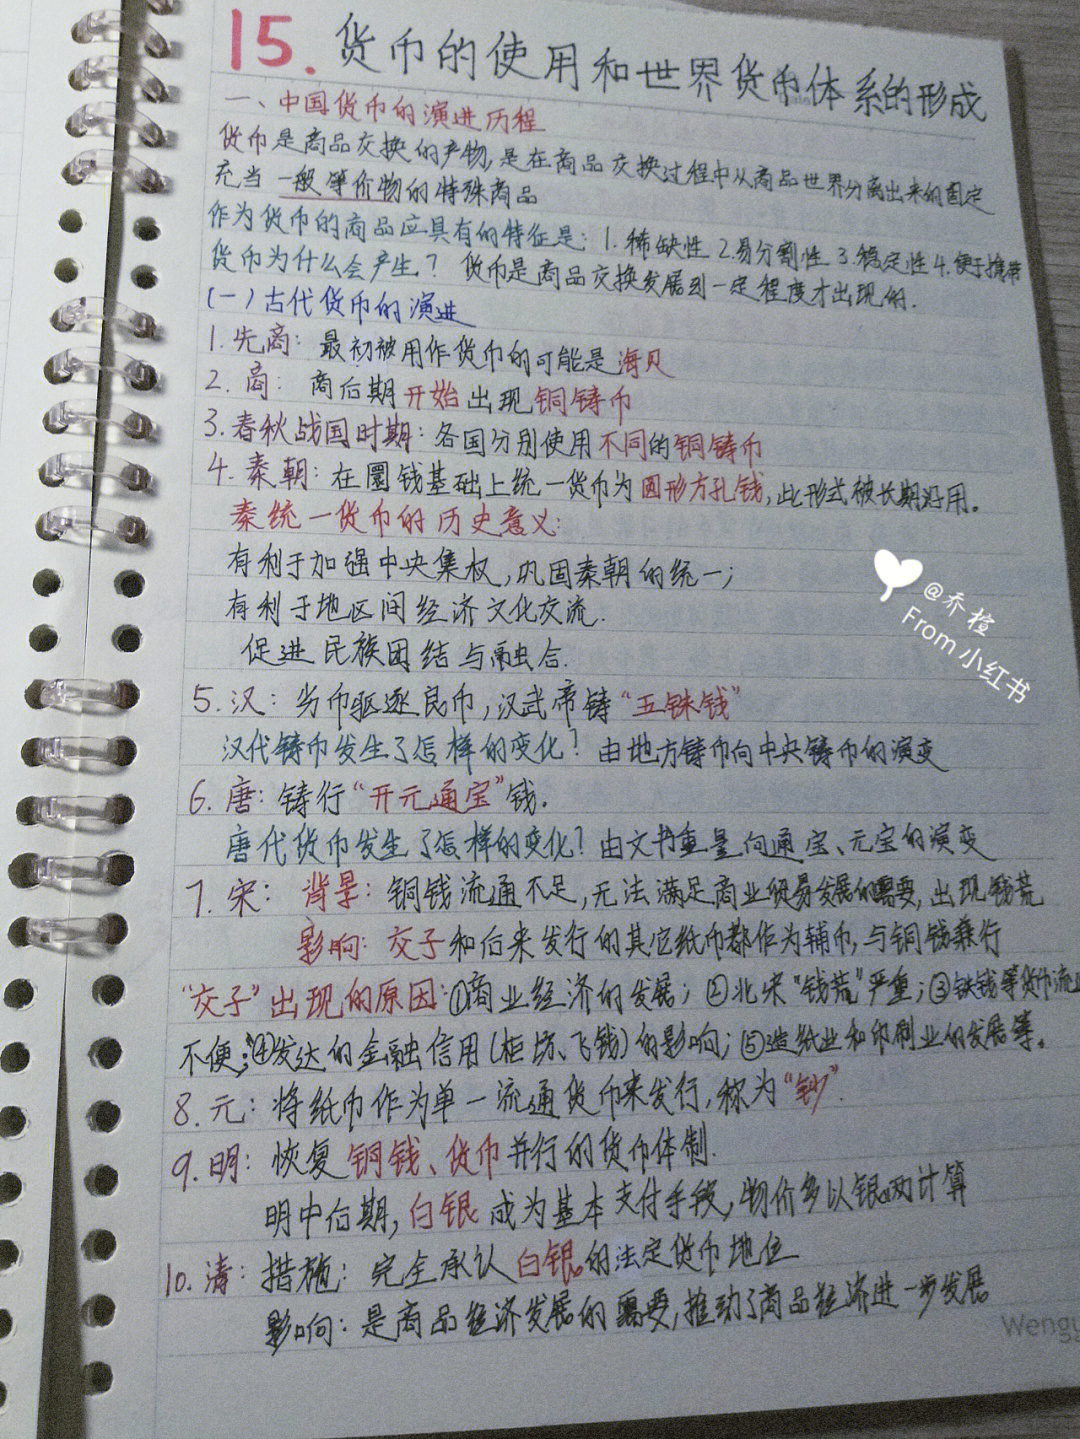 15. 货币的使用和世界货币体系的形成
一、中国货币的演进历程
货币是商品交换的产物,是在商品交换过程中从商品世界分离出来的固定
充当一般等价物的特殊商品
作为货币的商品应具有的特征是：1.稀缺性 2.易分割性 3.稳定性 4.便于携带
货币为什么会产生？货币是商品交换发展到一定程度才出现的.
(一)古代货币的演进
1.先商：最初被用作货币的可能是海贝
2.商：商后期开始出现铜铸币
3.春秋战国时期：各国分别使用不同的铜铸币
4.秦朝：在圜钱基础上统一货币为圆形方孔钱,此形式被长期沿用。
秦统一货币的历史意义:
有利于加强中央集权,巩固秦朝的统一;
有利于地区间经济文化交流.
促进民族团结与融合.
@乔楂
From 小红书
5.汉：劣币驱逐良币,汉武帝铸“五铢钱”
汉代铸币发生了怎样的变化？由地方铸币向中央铸币的演变
6.唐：铸行“开元通宝”钱.
唐代货币发生了怎样的变化？由文书重量向通宝、元宝的演变
7.宋：背景：铜钱流通不足,无法满足商业贸易发展的需要,出现钱荒
影响：交子和后来发行的其它纸币都作为辅币,与铜钱兼行
“交子”出现的原因:①商业经济的发展；②北宋“钱荒”严重；③铁钱等货币流通
不便；④发达的金融信用(柜坊、飞钱)的影响；⑤造纸业和印刷业的发展等。
8.元：将纸币作为单一流通货币来发行,称为“钞”.
9.明：恢复铜钱、货币并行的货币体制.
明中后期,白银成为基本支付手段,物价多以银两计算
10.清：措施：完全承认白银的法定货币地位
影响：是商品经济发展的需要,推动了商品经济进一步发展
Wengu